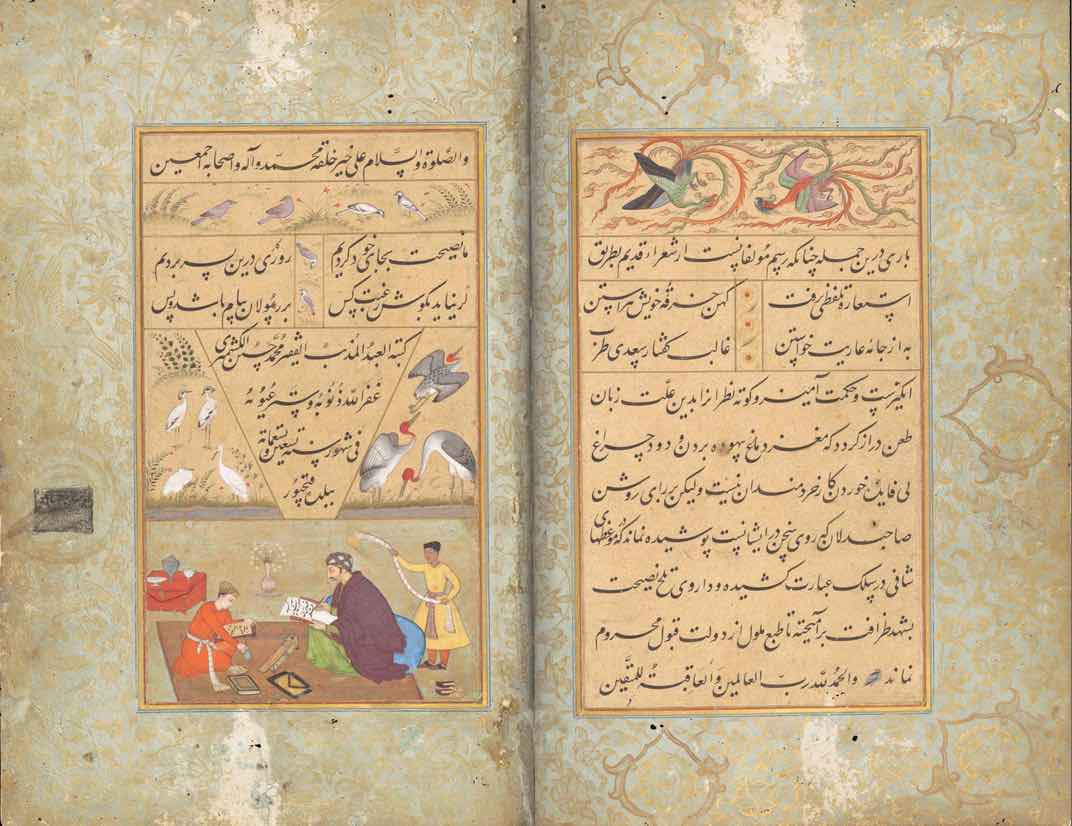 باری درین جمله چنانکه رسم مولفانست از شعرا قدیم بطریق
استعاره رفت کهن خرقه خویش پیراستن
به از جامه عاریت خواستن غالب گفتار سعدی طرب
انگیزست و حکمت آمیز و کوته نظرانرا بدین علت زبان
طعن دراز گردد که مغز دماغ بیهوده بردن و دود چراغ
بی فایده خوردن کار خردمندان نیست ولیکن بر رای روشن
صاحبدلان که روی سخن در ایشانست پوشیده نماند که موعظهای
شافی در سلک عبارت کشیده و داروی تلخ نصیحت
بشهد ظرافت برآمیخته تا طبع ملول از دولت قبول محروم
نماند والحمد لله رب العالمین والعاقبة للمتقین
والصلوة والسلام علی خیر خلقه محمد وآله واصحابه اجمعین
ما نصیحت بجای خود کردیم روزی درین بسر بردیم
گر نیاید بگوش رغبت کس بر رسولان پیام باشد و بس
کتبه العبد المذنب الفقیر محمد حسین الکشمیری
غفر الله ذنوبه و ستر عیوبه
فی شهور سنة تسعین و تسعمائة
ببلدة فتحپور